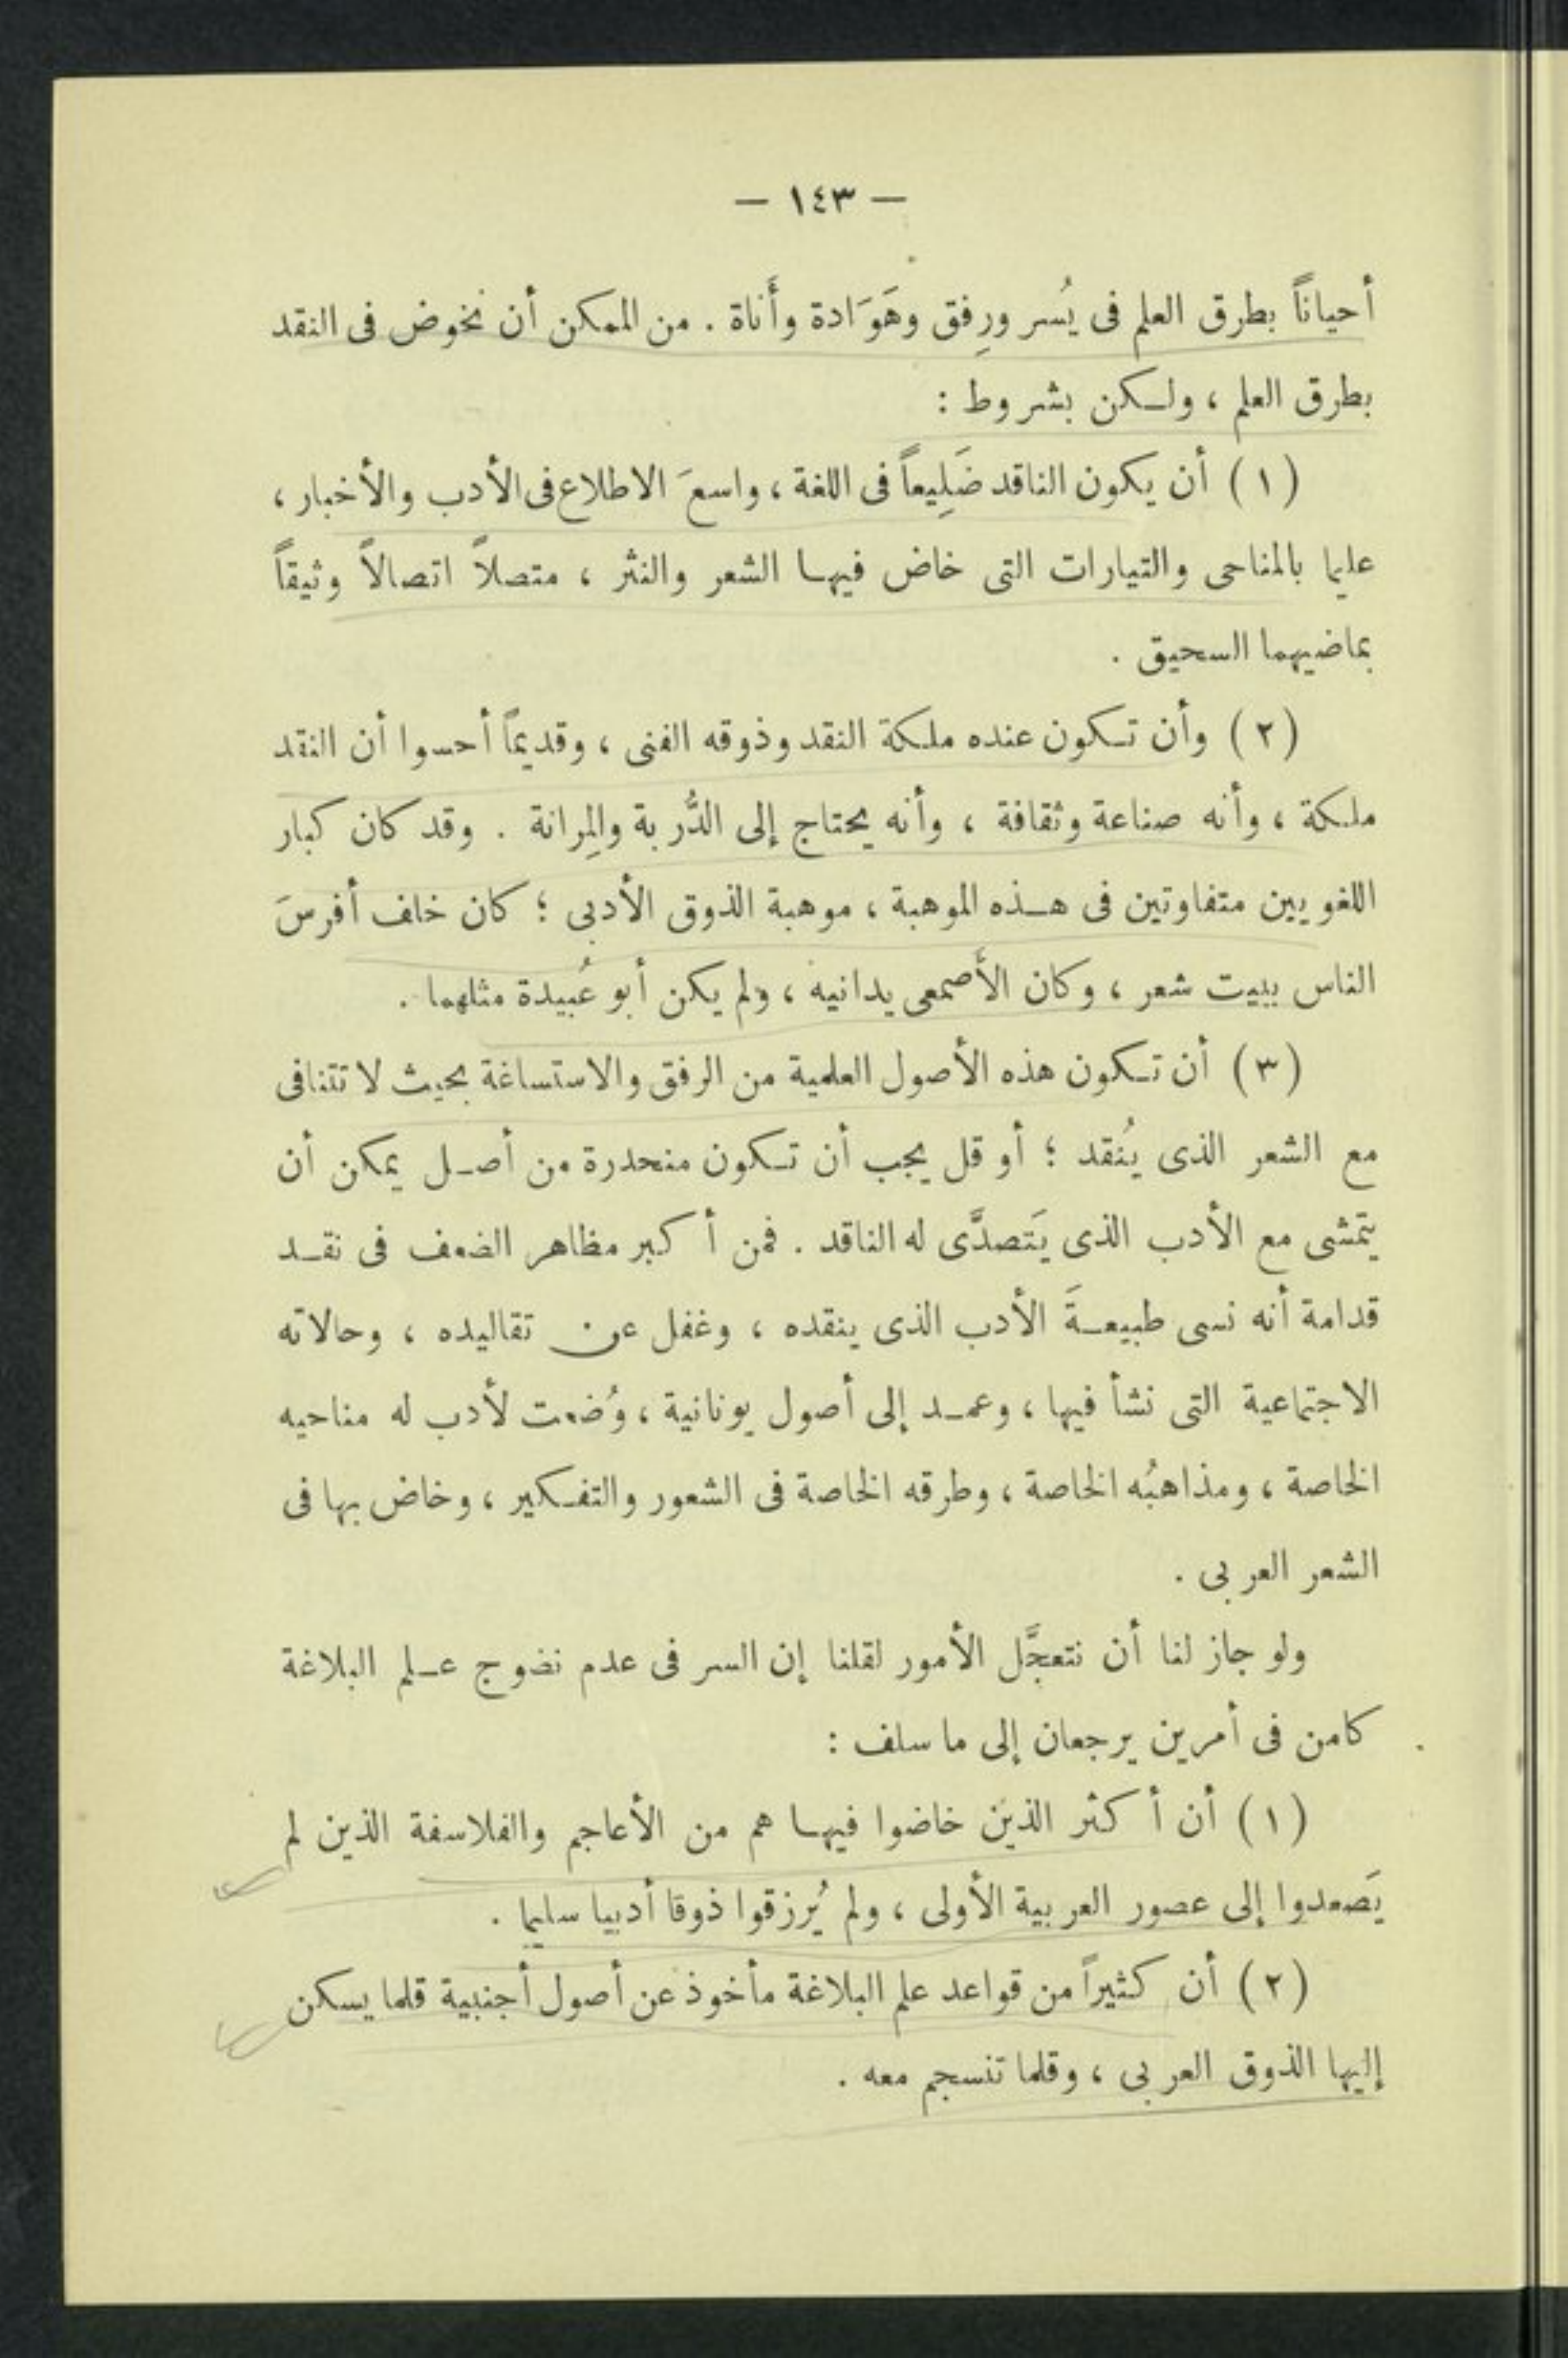 — ١٤٣ —
أحياناً بطرق العلم فى يُسر ورِفق وهَوَادة وأَناة . من الممكن أن نخوض فى النقد
بطرق العلم ، ولكن بشروط :
( ١ ) أن يكون الناقد ضَلِيعاً فى اللغة ، واسعَ الاطلاع فى الأدب والأخبار ،
عليما بالمناحى والتيارات التى خاض فيها الشعر والنثر ، متصلاً اتصالاً وثيقاً
بماضيهما السحيق .
( ٢ ) وأن تكون عنده ملكة النقد وذوقه الفنى ، وقديماً أحسوا أن النقد
ملكة ، وأنه صناعة وثقافة ، وأنه يحتاج إلى الدُّربة والمِرانة . وقد كان كبار
اللغويين متفاوتين فى هذه الموهبة ، موهبة الذوق الأدبى ؛ كان خلف أفرسَ
الناس ببيت شعر ، وكان الأَصمعى يدانيه ، ولم يكن أبو عُبيدة مثلهما .
( ٣ ) أن تكون هذه الأصول العلمية من الرفق والاستساغة بحيث لا تتنافى
مع الشعر الذى يُنقد ؛ أو قل يجب أن تكون منحدرة من أصل يمكن أن
يتمشى مع الأدب الذى يَتصدَّى له الناقد . فمن أكبر مظاهر الضعف فى نقد
قدامة أنه نسى طبيعةَ الأدب الذى ينقده ، وغفل عن تقاليده ، وحالاته
الاجتماعية التى نشأ فيها ، وعمد إلى أصول يونانية ، وُضعت لأدب له مناحيه
الخاصة ، ومذاهبُه الخاصة ، وطرقه الخاصة فى الشعور والتفكير ، وخاض بها فى
الشعر العربى .
ولو جاز لنا أن نتعجَّل الأمور لقلنا إن السر فى عدم نضوج علم البلاغة
كامن فى أمرين يرجعان إلى ما سلف :
( ١ ) أن أكثر الذين خاضوا فيها هم من الأعاجم والفلاسفة الذين لم
يَصعدوا إلى عصور العربية الأولى ، ولم يُرزقوا ذوقا أدبيا سليما .
( ٢ ) أن كثيراً من قواعد علم البلاغة مأخوذ عن أصول أجنبية قلما يسكن
إليها الذوق العربى ، وقلما تنسجم معه .